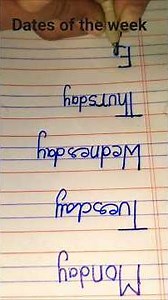 Dates of the week
Monday
Tuesday
Wednesday
Thursday